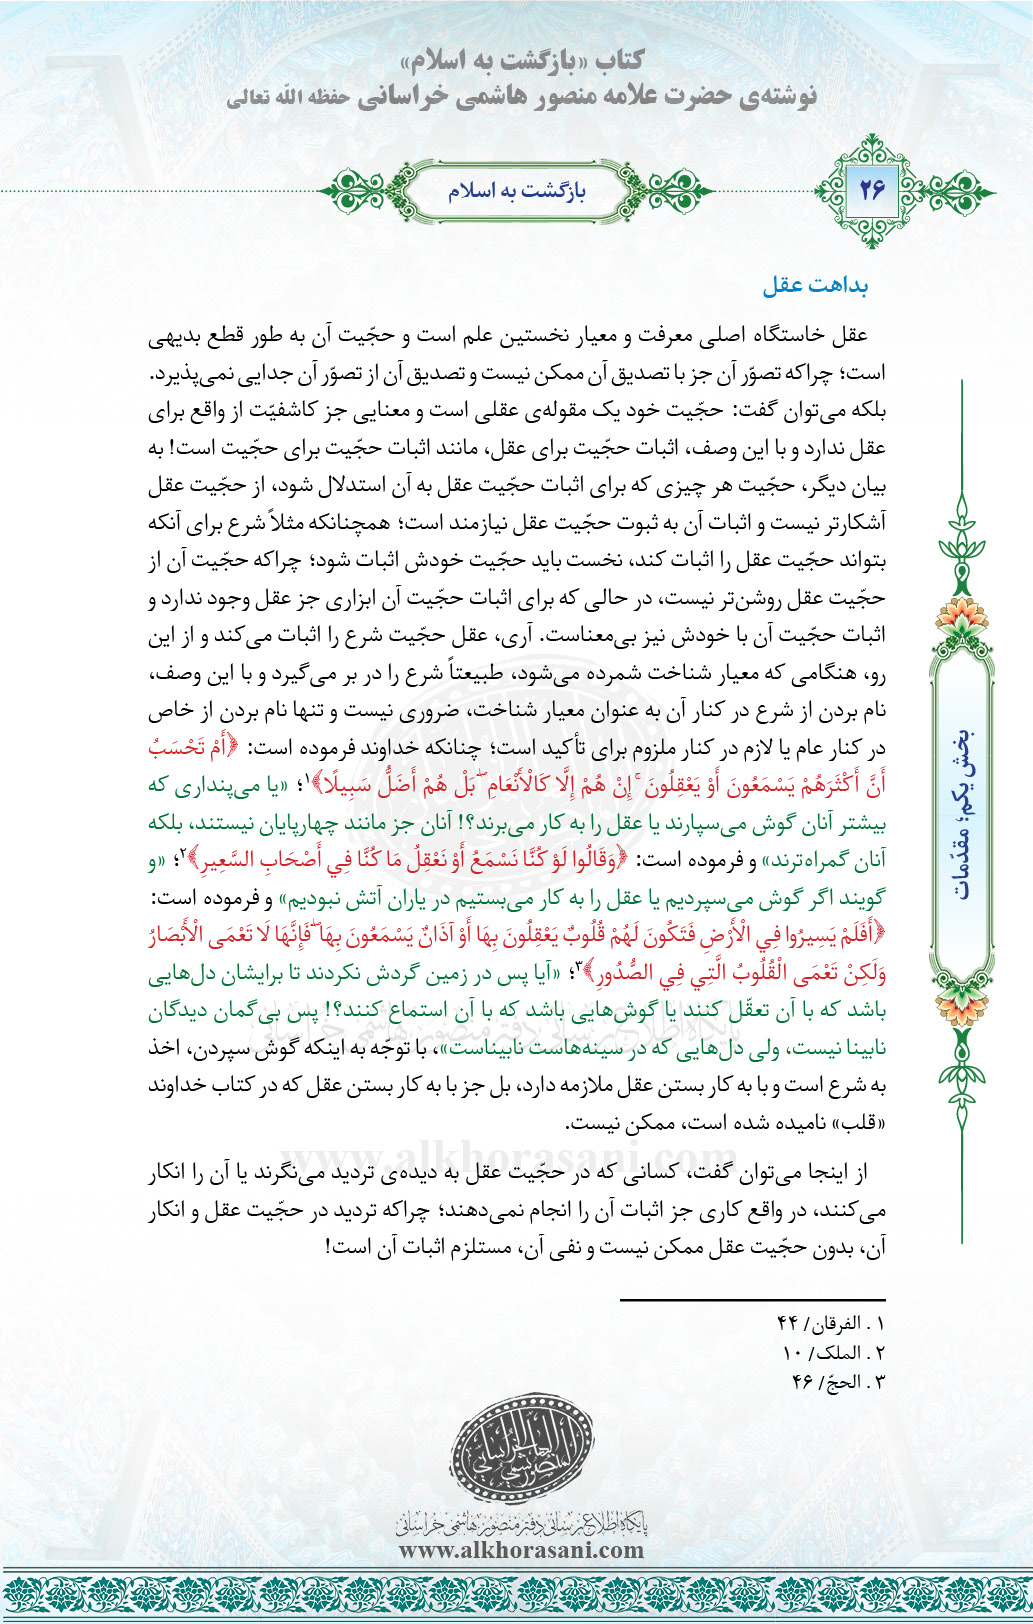 کتاب «بازگشت به اسلام»
نوشته‌ی حضرت علامه منصور هاشمی خراسانی حفظه الله تعالی
۲۶
بازگشت به اسلام
بداهت عقل
عقل خاستگاه اصلی معرفت و معیار نخستین علم است و حجّیت آن به طور قطع بدیهی
است؛ چراکه تصوّر آن جز با تصدیق آن ممکن نیست و تصدیق آن از تصوّر آن جدایی نمی‌پذیرد.
بلکه می‌توان گفت: حجّیت خود یک مقوله‌ی عقلی است و معنایی جز کاشفیّت از واقع برای
عقل ندارد و با این وصف، اثبات حجّیت برای عقل، مانند اثبات حجّیت برای حجّیت است! به
بیان دیگر، حجّیت هر چیزی که برای اثبات حجّیت عقل به آن استدلال شود، از حجّیت عقل
آشکارتر نیست و اثبات آن به ثبوت حجّیت عقل نیازمند است؛ همچنانکه مثلاً شرع برای آنکه
بتواند حجّیت عقل را اثبات کند، نخست باید حجّیت خودش اثبات شود؛ چراکه حجّیت آن از
حجّیت عقل روشن‌تر نیست، در حالی که برای اثبات حجّیت آن ابزاری جز عقل وجود ندارد و
اثبات حجّیت آن با خودش نیز بی‌معناست. آری، عقل حجّیت شرع را اثبات می‌کند و از این
رو، هنگامی که معیار شناخت شمرده می‌شود، طبیعتاً شرع را در بر می‌گیرد و با این وصف،
نام بردن از شرع در کنار آن به عنوان معیار شناخت، ضروری نیست و تنها نام بردن از خاص
در کنار عام یا لازم در کنار ملزوم برای تأکید است؛ چنانکه خداوند فرموده است: ﴿أَمْ تَحْسَبُ
أَنَّ أَكْثَرَهُمْ يَسْمَعُونَ أَوْ يَعْقِلُونَ ۚ إِنْ هُمْ إِلَّا كَالْأَنْعَامِ ۖ بَلْ هُمْ أَضَلُّ سَبِيلًا﴾۱؛ «یا می‌پنداری که
بیشتر آنان گوش می‌سپارند یا عقل را به کار می‌برند؟! آنان جز مانند چهارپایان نیستند، بلکه
آنان گمراه‌ترند» و فرموده است: ﴿وَقَالُوا لَوْ كُنَّا نَسْمَعُ أَوْ نَعْقِلُ مَا كُنَّا فِي أَصْحَابِ السَّعِيرِ﴾۲؛ «و
گویند اگر گوش می‌سپردیم یا عقل را به کار می‌بستیم در یاران آتش نبودیم» و فرموده است:
﴿أَفَلَمْ يَسِيرُوا فِي الْأَرْضِ فَتَكُونَ لَهُمْ قُلُوبٌ يَعْقِلُونَ بِهَا أَوْ آذَانٌ يَسْمَعُونَ بِهَا ۖ فَإِنَّهَا لَا تَعْمَى الْأَبْصَارُ
وَلَكِنْ تَعْمَى الْقُلُوبُ الَّتِي فِي الصُّدُورِ﴾۳؛ «آیا پس در زمین گردش نکردند تا برایشان دل‌هایی
باشد که با آن تعقّل کنند یا گوش‌هایی باشد که با آن استماع کنند؟! پس بی‌گمان دیدگان
نابینا نیست، ولی دل‌هایی که در سینه‌هاست نابیناست»، با توجّه به اینکه گوش سپردن، اخذ
به شرع است و با به کار بستن عقل ملازمه دارد، بل جز با به کار بستن عقل که در کتاب خداوند
«قلب» نامیده شده است، ممکن نیست.
از اینجا می‌توان گفت، کسانی که در حجّیت عقل به دیده‌ی تردید می‌نگرند یا آن را انکار
می‌کنند، در واقع کاری جز اثبات آن را انجام نمی‌دهند؛ چراکه تردید در حجّیت عقل و انکار
آن، بدون حجّیت عقل ممکن نیست و نفی آن، مستلزم اثبات آن است!
۱ . الفرقان/ ۴۴
۲ . الملک/ ۱۰
۳ . الحجّ/ ۴۶
بخش یکم؛ مقدّمات
پایگاه اطلاع‌رسانی دفتر منصور هاشمی خراسانی
www.alkhorasani.com
پایگاه اطلاع‌رسانی دفتر منصور هاشمی خراسانی
www.alkhorasani.com